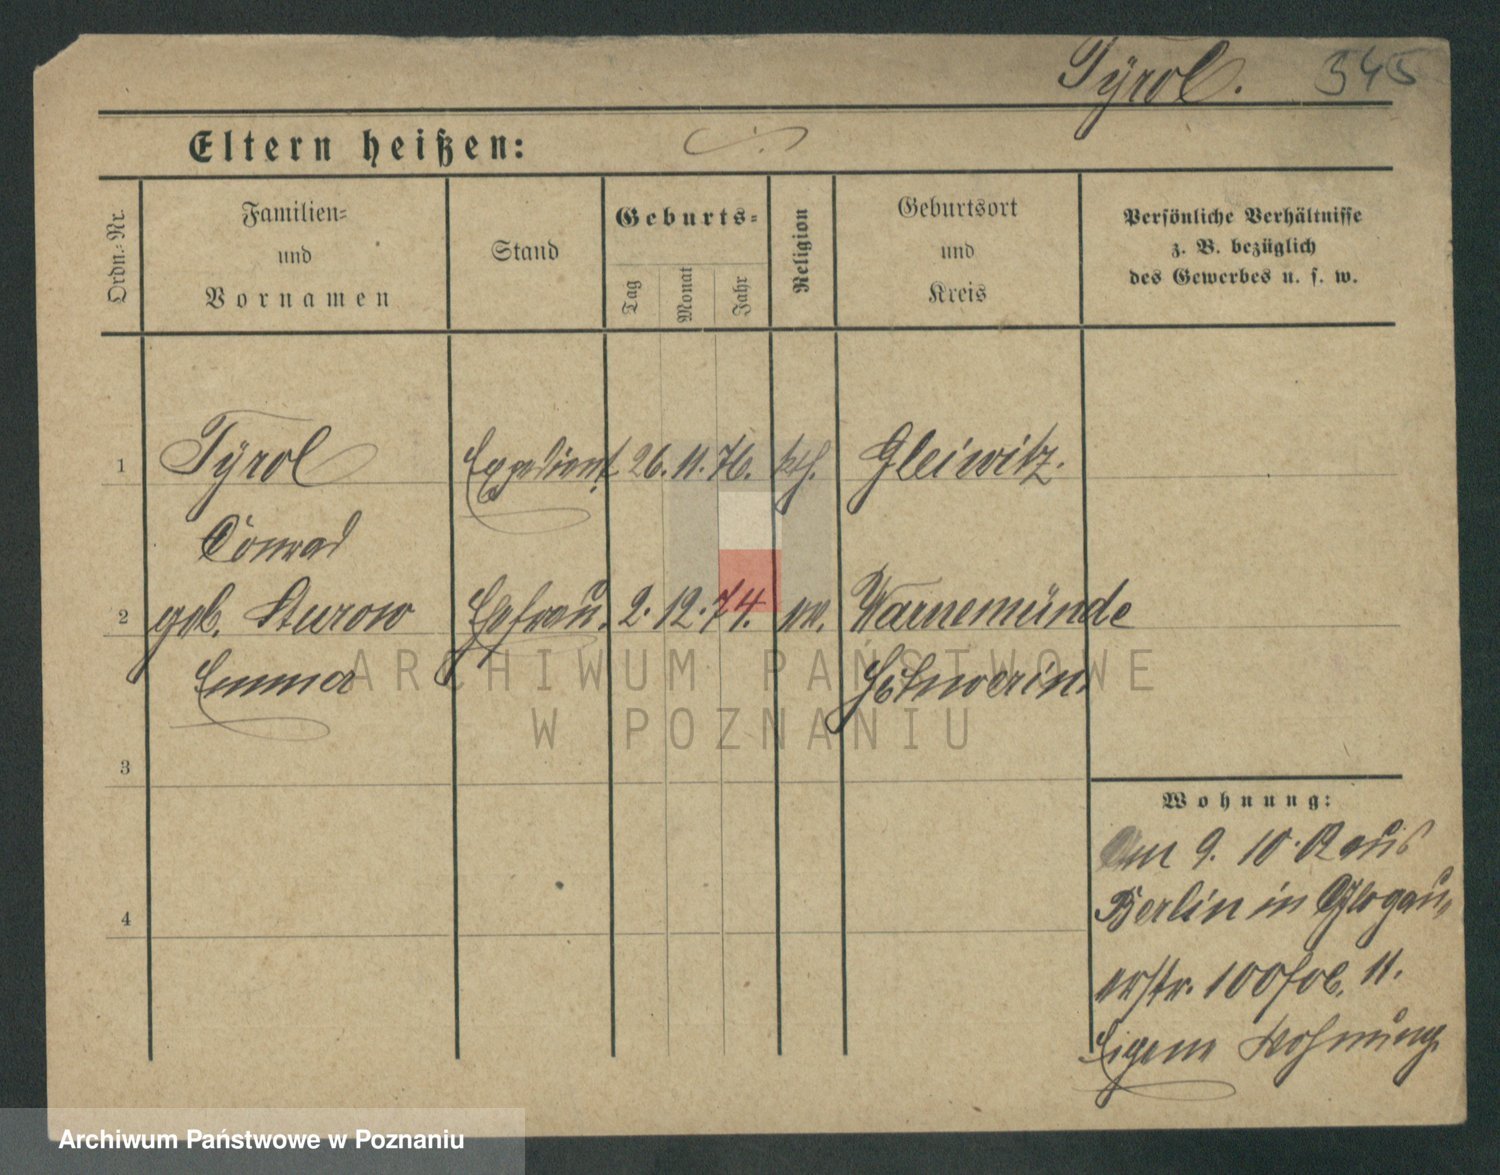 Tyrol. 345
Eltern heißen:
Ordn.-Nr.
Familien-
und
Vornamen
Stand
Geburts-
Tag
Monat
Jahr
Religion
Geburtsort
und
Kreis
Persönliche Verhältnisse
z. B. bezüglich
des Gewerbes u. s. w.
1 Tyrol Expedient 26. 11. 76. kth. Gleiwitz.
Conrad
2 geb. Sturow Ehefrau. 2. 12. 74. ev. Warnemünde
Emma Schwerin.
ARCHIWUM PAŃSTWOWE
W POZNANIU
3
4
Wohnung:
9. 10. aus
Berlin in Glogau-
erstr. 100
Eigene Wohnung
Archiwum Państwowe w Poznaniu